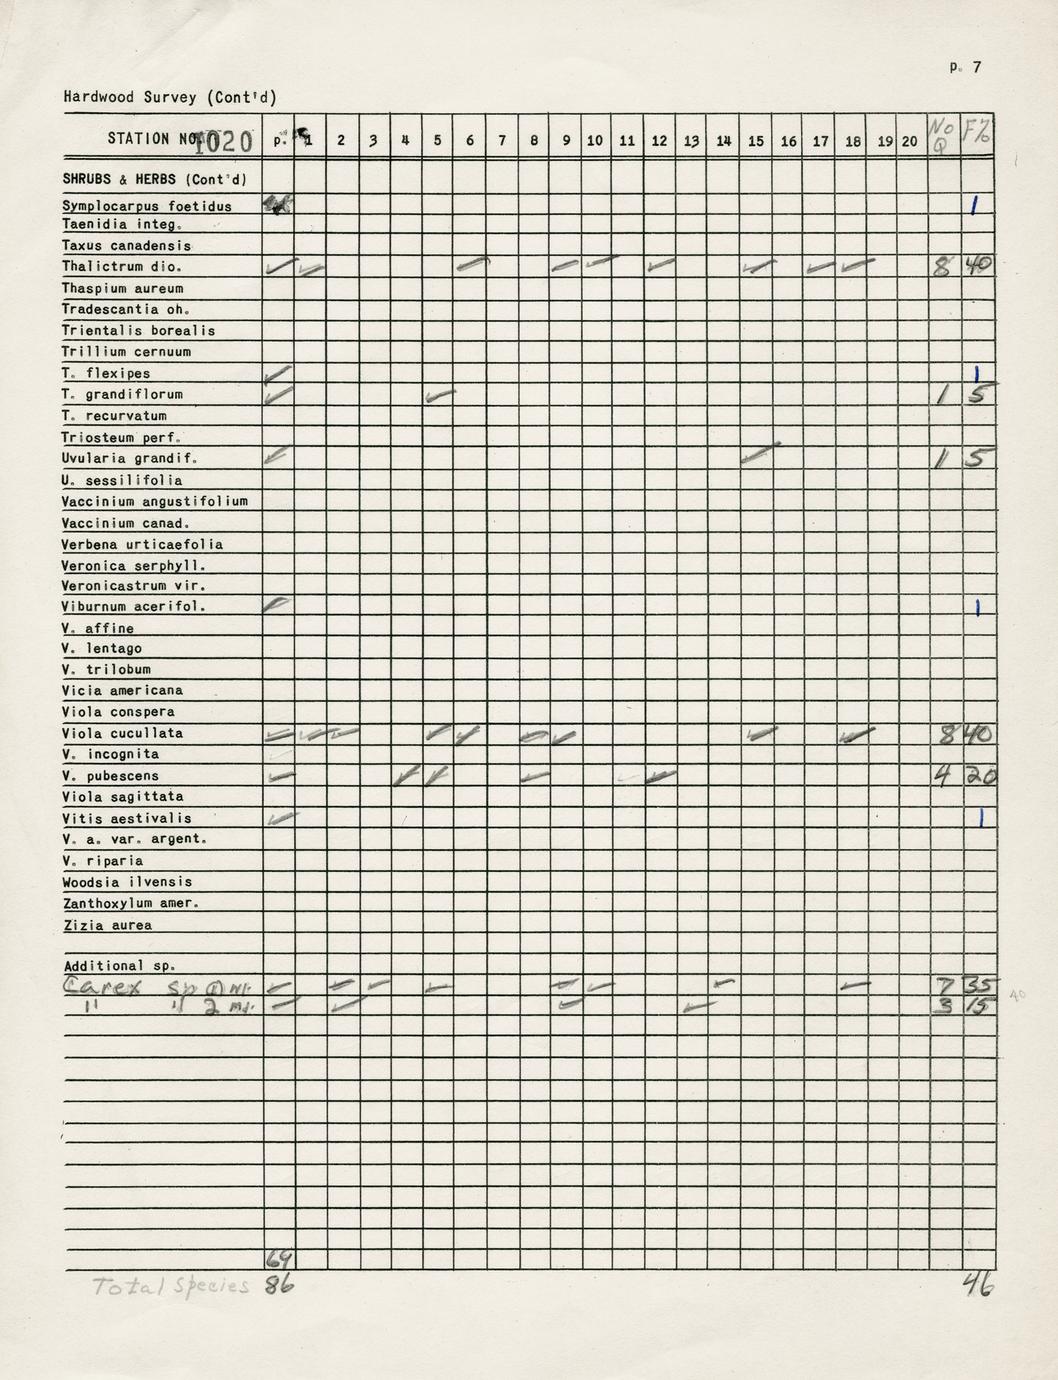 p. 7
Hardwood Survey (Cont'd)
STATION NO. 1020 p. 1 2 3 4 5 6 7 8 9 10 11 12 13 14 15 16 17 18 19 20 No Q F%
SHRUBS & HERBS (Cont'd)
Symplocarpus foetidus 1
Taenidia integ.
Taxus canadensis
Thalictrum dio. ✓ ✓ ✓ ✓ ✓ ✓ ✓ ✓ ✓ 8 40
Thaspium aureum
Tradescantia oh.
Trientalis borealis
Trillium cernuum
T. flexipes ✓ 1
T. grandiflorum ✓ ✓ 1 5
T. recurvatum
Triosteum perf.
Uvularia grandif. ✓ ✓ 1 5
U. sessilifolia
Vaccinium angustifolium
Vaccinium canad.
Verbena urticaefolia
Veronica serphyll.
Veronicastrum vir.
Viburnum acerifol. ✓ 1
V. affine
V. lentago
V. trilobum
Vicia americana
Viola conspera
Viola cucullata ✓ ✓ ✓ ✓ ✓ ✓ ✓ ✓ ✓ 8 40
V. incognita
V. pubescens ✓ ✓ ✓ ✓ ✓ 4 20
Viola sagittata
Vitis aestivalis ✓ 1
V. a. var. argent.
V. riparia
Woodsia ilvensis
Zanthoxylum amer.
Zizia aurea
Additional sp.
Carex sp ① ✓ ✓ ✓ ✓ ✓ ✓ ✓ ✓ 7 35
" " 2 ✓ ✓ ✓ ✓ 3 15 40
69
Total Species 86 46